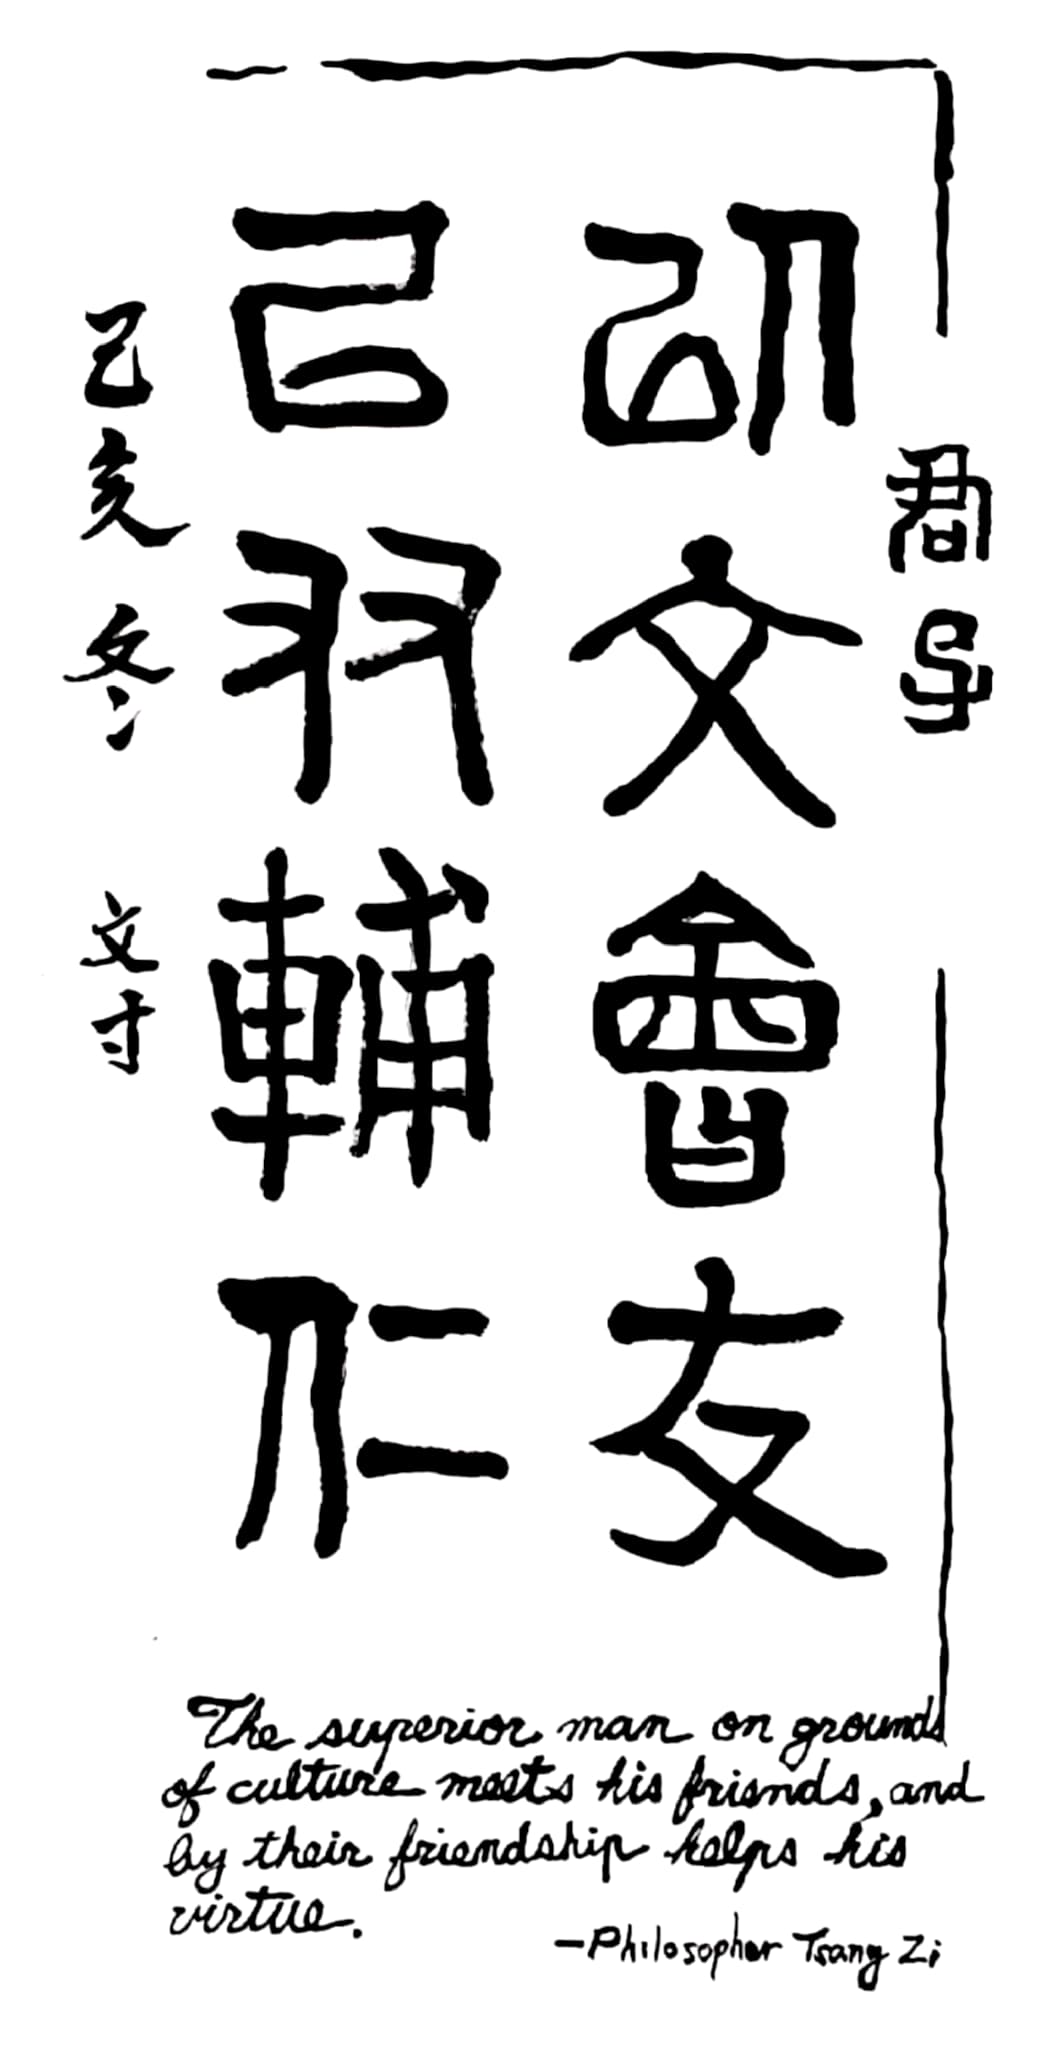 君子
以文會友
以友輔仁
己亥冬 文寸
The superior man on grounds
of culture meets his friends, and
by their friendship helps his
virtue.
—Philosopher Tsang Zi